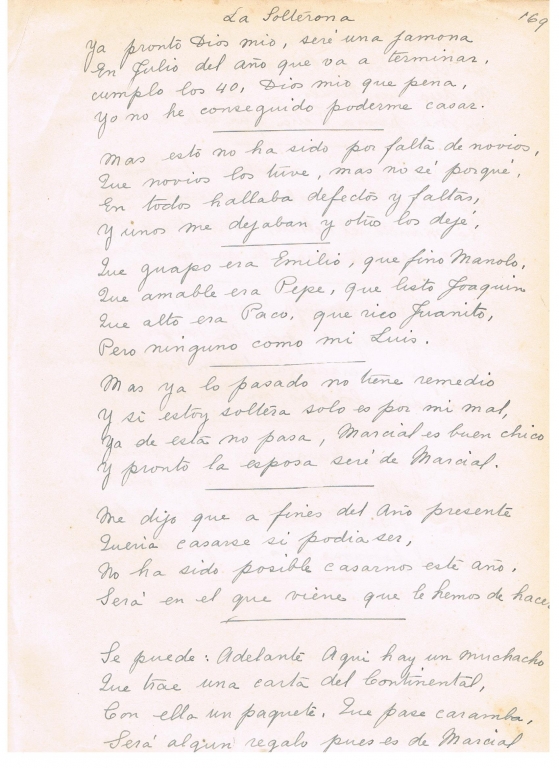 La Solterona
169
Ya pronto Dios mio, seré una jamona
En Julio del año que va a terminar,
cumplo los 40, Dios mio que pena,
Yo no he conseguido poderme casar.
Mas esto no ha sido por falta de novios,
Que novios los tuve, mas no sé porqué,
En todos hallaba defectos y faltas,
Y unos me dejaban y otros los dejé,
Que guapo era Emilio, que fino Manolo,
Que amable era Pepe, que listo Joaquin
Que alto era Paco, que rico Juanito,
Pero ninguno como mi Luis.
Mas ya lo pasado no tiene remedio
Y si estoy soltera solo es por mi mal,
Ya de esta no pasa, Marcial es buen chico
Y pronto la esposa seré de Marcial.
Me dijo que a fines del Año presente
Queria casarse si podia ser,
No ha sido posible casarnos este año,
Será en el que viene que le hemos de hacer
Se puede: Adelante Aqui hay un muchacho
Que trae una carta del Continental,
Con ella un paquete. Que pase caramba,
Será algun regalo pues es de Marcial